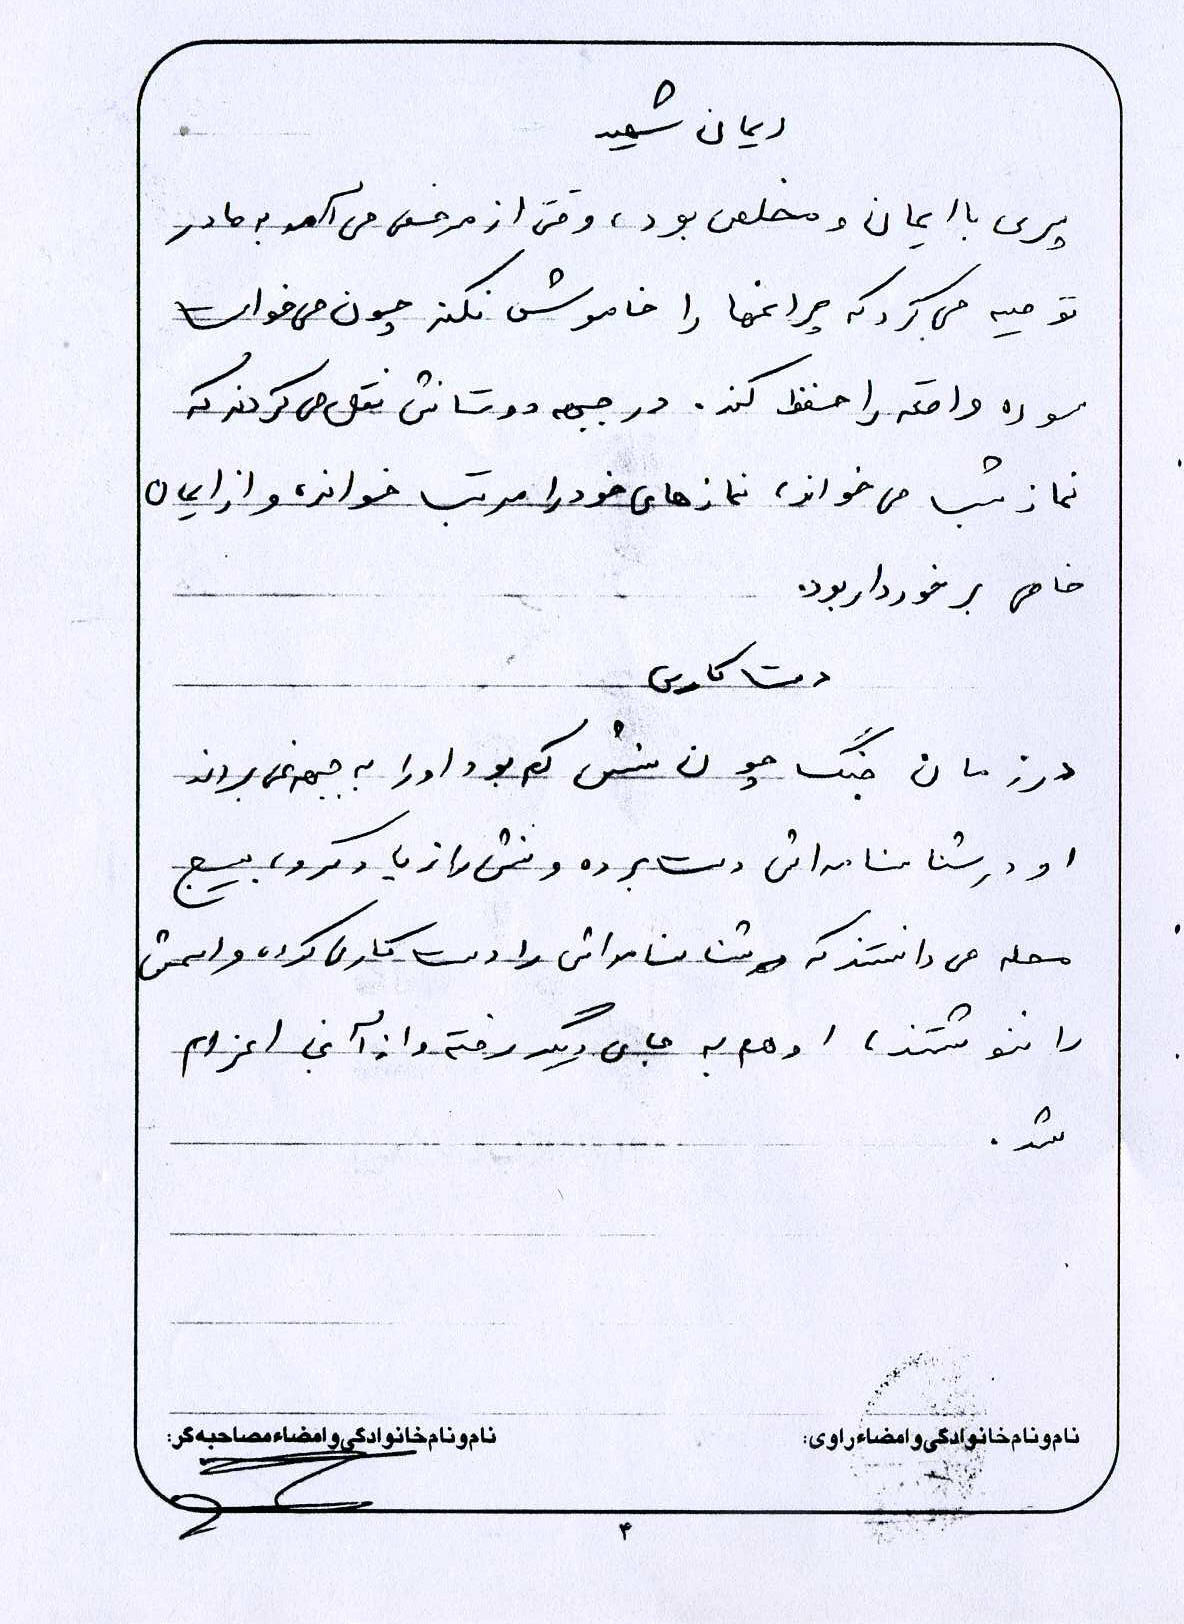 ایمان شهید
پسری با ایمان و مخلص بود، وقتی از مرخصی می‌آمد به مادر
توصیه می‌کرد که چراغها را خاموش نکند چون می‌خواست
سوره واقعه را حفظ کند. در جبهه دوستانش نقل می‌کردند که
نماز شب می‌خواند، نمازهای خود را مرتب خوانده و از ایمان
خاصی برخوردار بود.
دست کاری
در زمان جنگ چون سنش کم بود او را به جبهه نمی‌بردند
او در شناسنامه‌اش دست برده و سنش را زیاد کرد، بسیج
محله می‌دانستند که شناسنامه‌اش را دست کاری کرده و اسمش
را ننوشتند، او هم به جای دیگر رفته و از آنجا اعزام
شد.
نام و نام خانوادگی و امضاء راوی:
نام و نام خانوادگی و امضاء مصاحبه‌گر:
۴